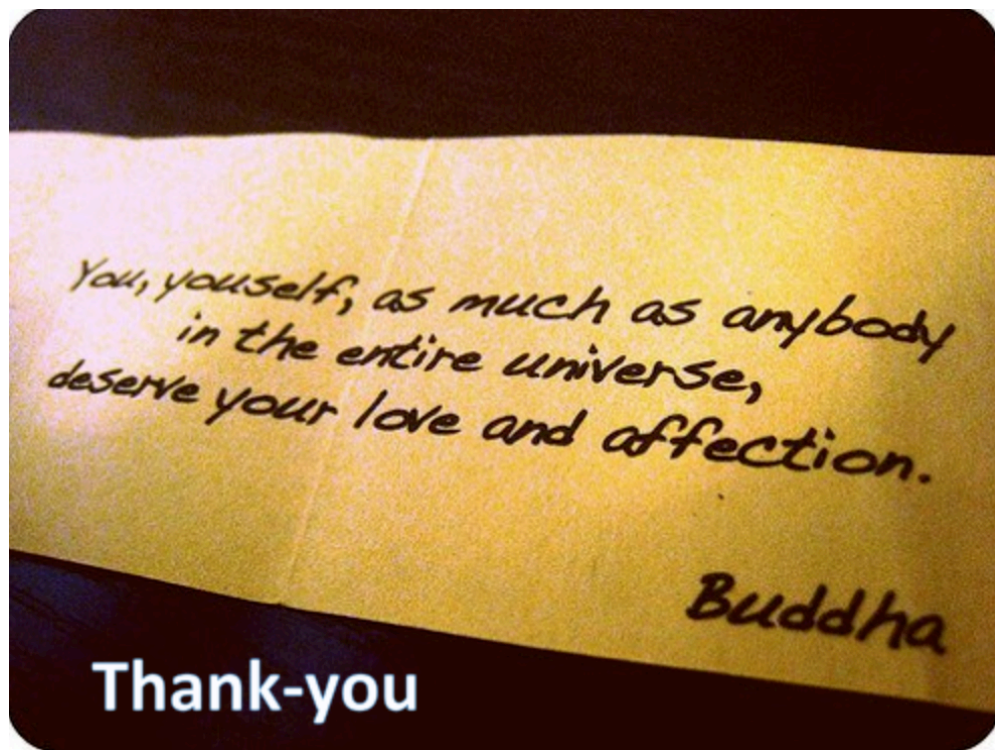 You, youself, as much as anybody
in the entire universe,
deserve your love and affection.
Buddha
Thank-you